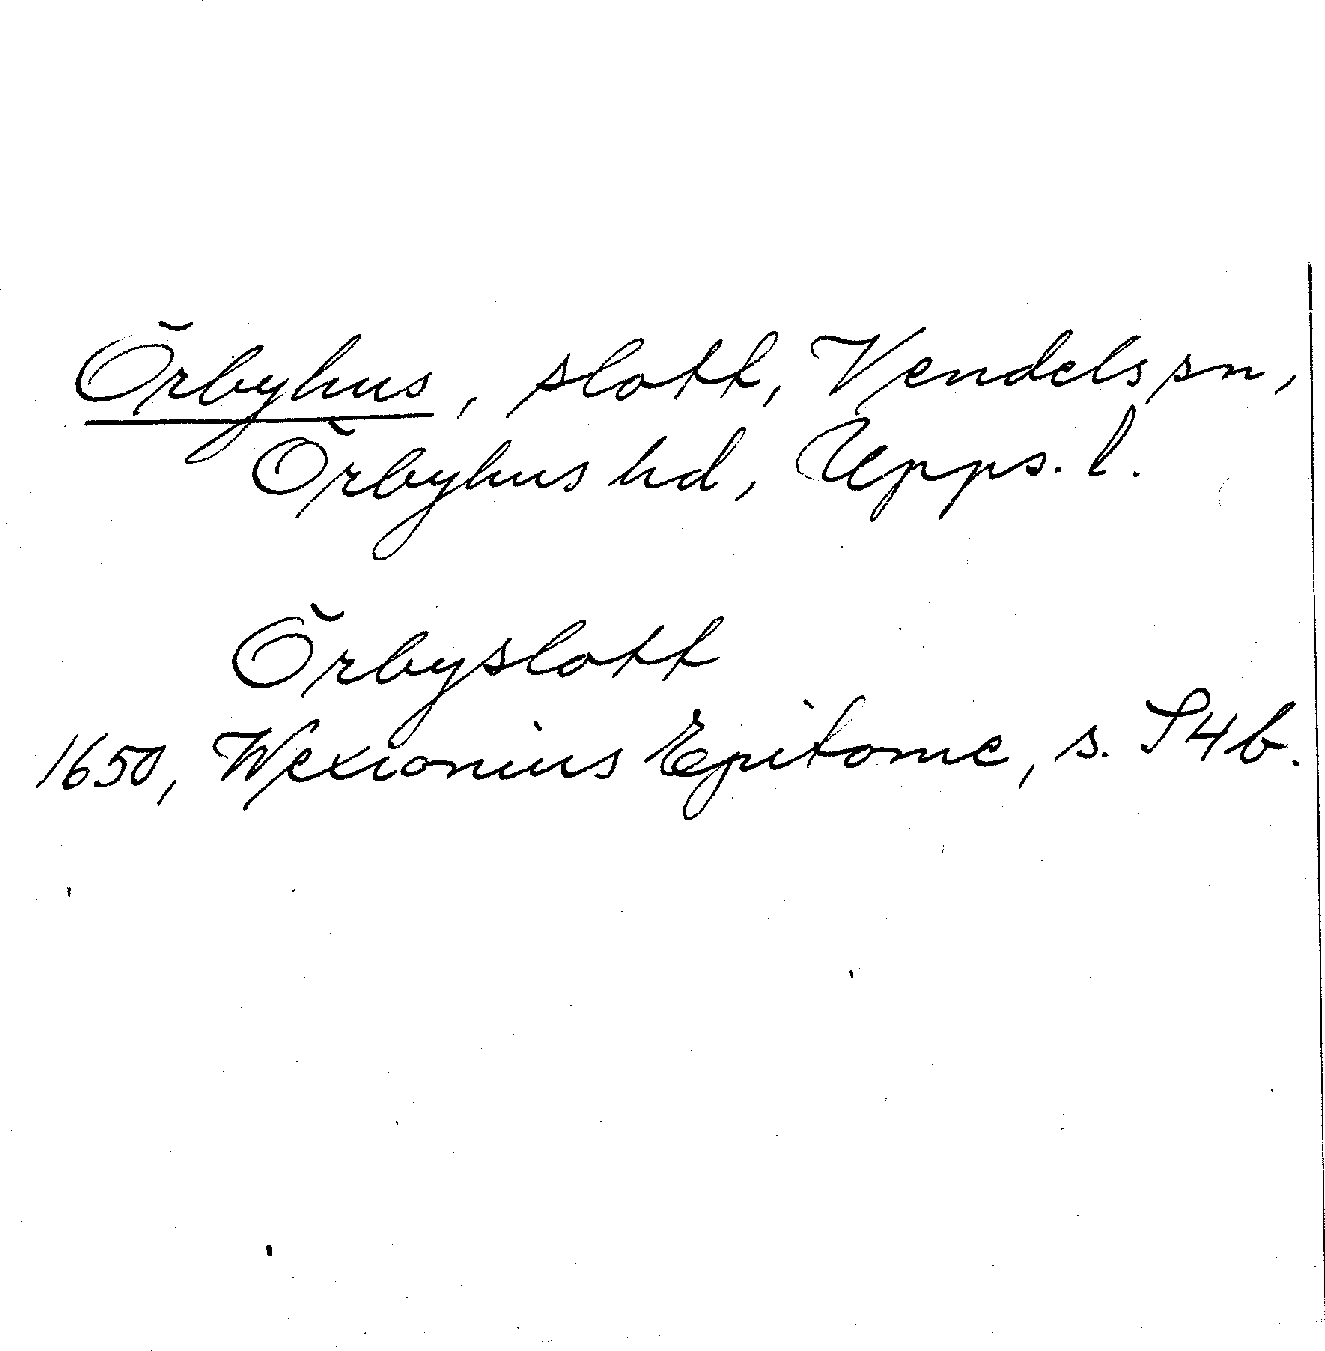 Örbyhus, slott, Vendels sn,
Örbyhus hd, Upps. l.
Örbyslott
1650, Wexionius Epitome, s. T4b.